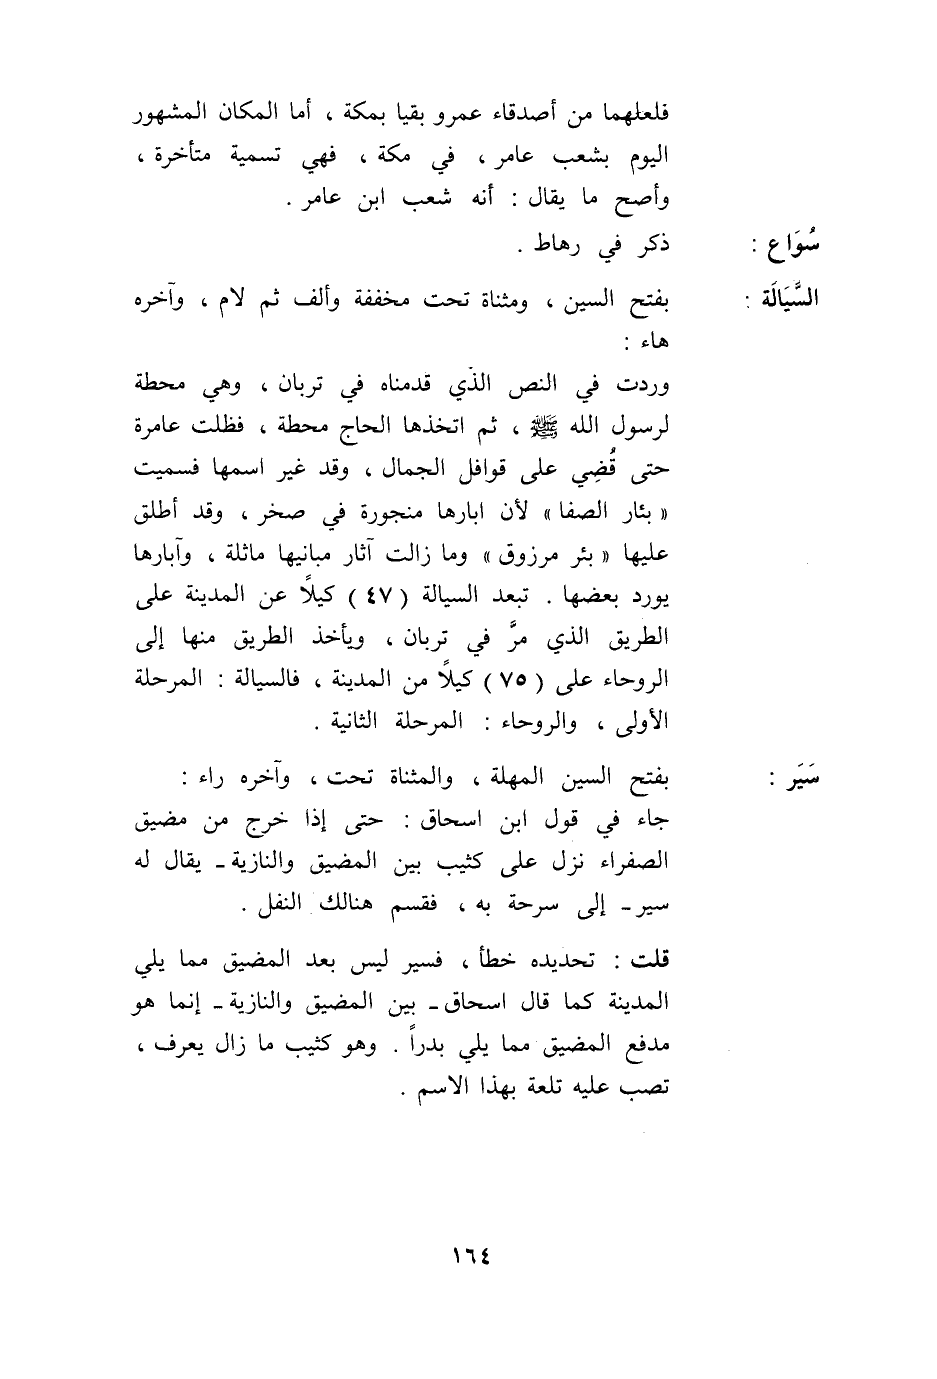 فلعلهما من أصدقاء عمرو بقيا بمكة ، أما المكان المشهور
اليوم بشعب عامر ، في مكة ، فهي تسمية متأخرة ،
وأصح ما يقال : أنه شعب ابن عامر .
سُوَاع : ذكر في رهاط .
السَّيَالَة : بفتح السين ، ومثناة تحت مخففة وألف ثم لام ، وآخره
هاء :
وردت في النص الذي قدمناه في تربان ، وهي محطة
لرسول الله ﷺ ، ثم اتخذها الحاج محطة ، فظلت عامرة
حتى قُضِي على قوافل الجمال ، وقد غير اسمها فسميت
« بئار الصفا » لأن ابارها منجورة في صخر ، وقد أطلق
عليها « بئر مرزوق » وما زالت آثار مبانيها ماثلة ، وآبارها
يورد بعضها . تبعد السيالة ( ٤٧ ) كيلًا عن المدينة على
الطريق الذي مرَّ في تربان ، ويأخذ الطريق منها إلى
الروحاء على ( ٧٥ ) كيلًا من المدينة ، فالسيالة : المرحلة
الأولى ، والروحاء : المرحلة الثانية .
سَيَر : بفتح السين المهلة ، والمثناة تحت ، وآخره راء :
جاء في قول ابن اسحاق : حتى إذا خرج من مضيق
الصفراء نزل على كثيب بين المضيق والنازية ـ يقال له
سير ـ إلى سرحة به ، فقسم هنالك النفل .
قلت : تحديده خطأ ، فسير ليس بعد المضيق مما يلي
المدينة كما قال اسحاق ـ بين المضيق والنازية ـ إنما هو
مدفع المضيق مما يلي بدراً . وهو كثيب ما زال يعرف ،
تصب عليه تلعة بهذا الاسم .
١٦٤